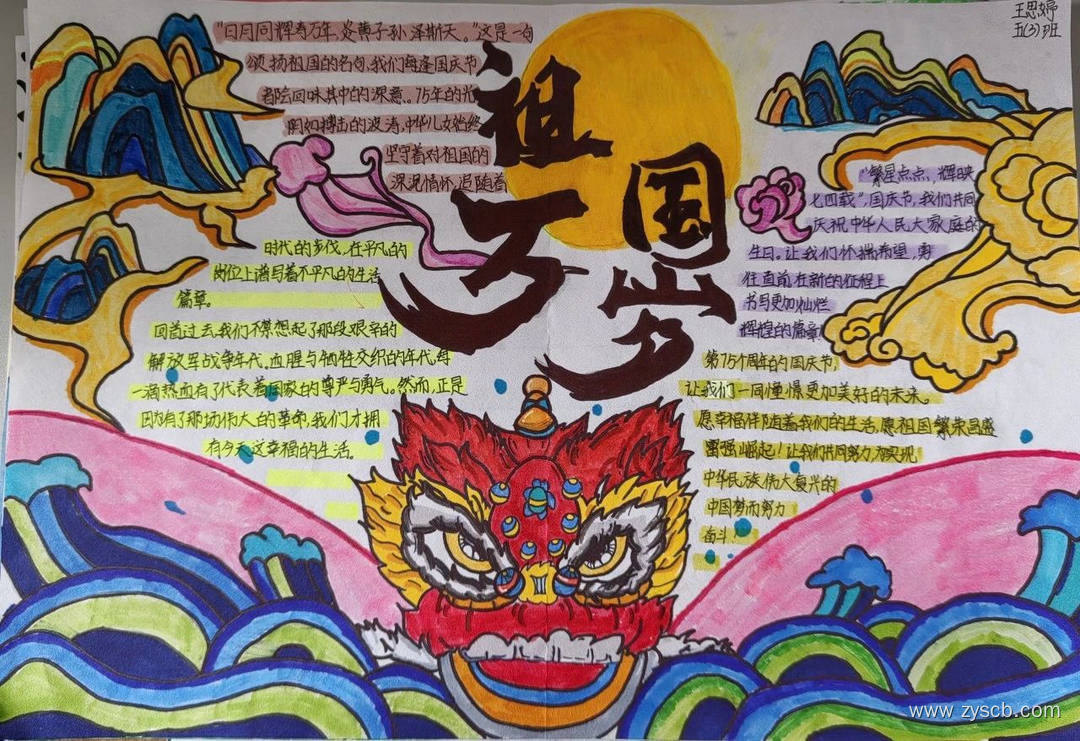 王思妤
五(3)班
祖国
万岁
"日月同辉寿万年,炎黄子孙泽斯天。"这是一句
颂扬祖国的名句,我们每逢国庆节
都会回味其中的深意。75年的光
阴如搏击的波涛,中华儿女始终
坚守着对祖国的
深沉情怀,追随着
时代的步伐,在平凡的
岗位上谱写着不平凡的生活
篇章。
回首过去,我们不禁想起了那段艰辛的
解放军战争年代,血腥与牺牲交织的年代,每
一滴热血有了代表着国家的尊严与勇气。然而,正是
因为有了那场伟大的革命,我们才拥
有今天这幸福的生活。
"繁星点点,辉映
七四载",国庆节,我们共同
庆祝中华人民大家庭的
生日。让我们怀揣希望,勇
往直前,在新的征程上
书写更加灿烂
辉煌的篇章!
第75个周年的国庆节,
让我们一同憧憬更加美好的未来。
愿幸福伴随着我们的生活,愿祖国繁荣昌盛
富强崛起!让我们共同努力,为实现
中华民族伟大复兴的
中国梦而努力
奋斗!
www.zyscb.com